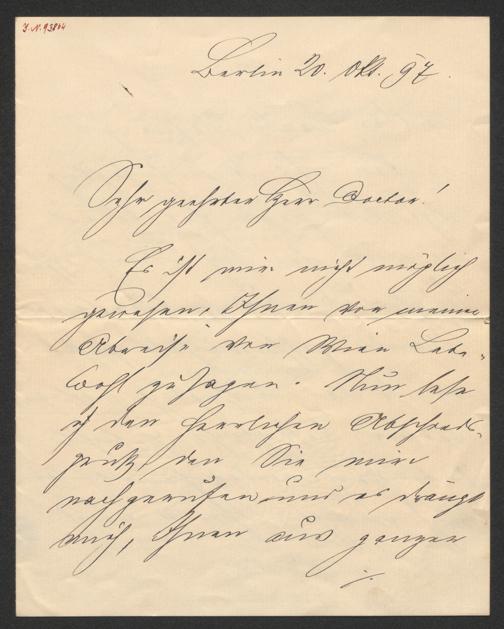 J.N. 93864
Berlin 20. Okt. 97.
Sehr geehrter Herr Doctor!
Es ist mir nicht möglich
gewesen, Ihnen vor meiner
Abreise von Wien Lebe-
wohl zu sagen. Nun lese
ich den herrlichen Abschieds-
gruß, den Sie mir
nachgerufen und es drängt
mich, Ihnen aus ganzer
./.